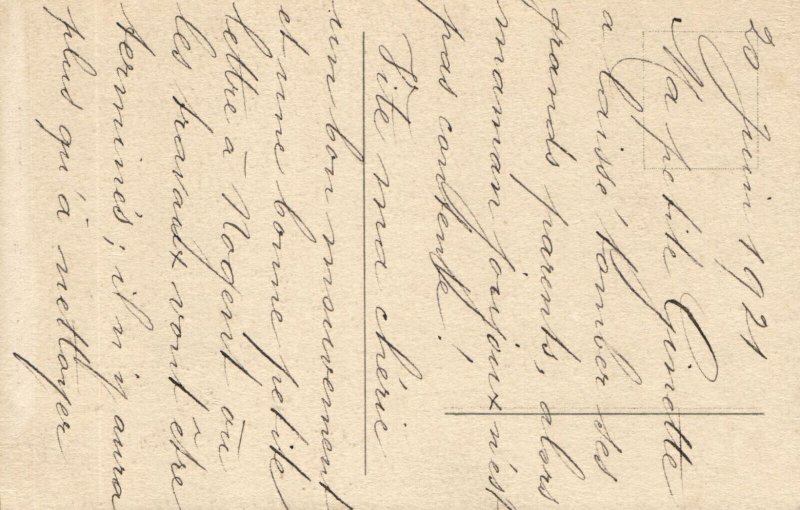 20 Juin 1921
Ma petite Ginette
a laissé tomber ses
grands parents, alors
maman joujoux n'est
pas contente!
Vite ma chérie
un bon mouvement
et une bonne petite
lettre à Nogent, où
les travaux vont être
terminés; il n'y aura
plus qu'à nettoyer